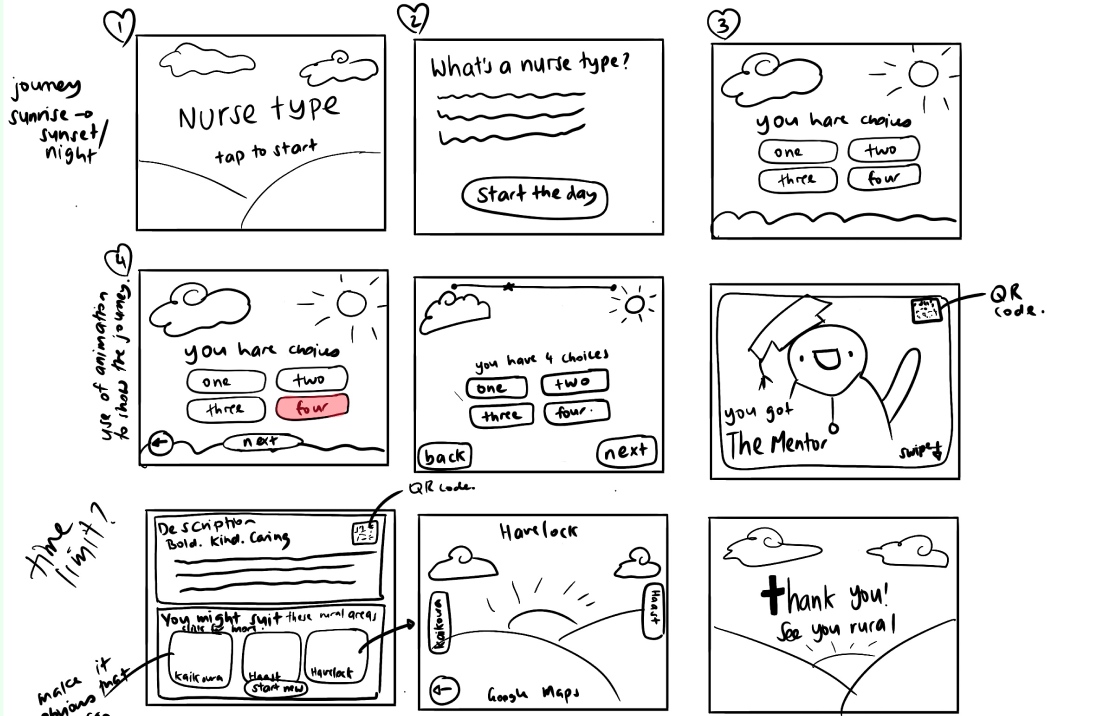 1
journey
sunrise →
sunset/
night
Nurse type
tap to start
2
What's a nurse type?
Start the day
3
you have choices
one
two
three
four
4
use of animation
to show the journey.
you have choices
one
two
three
four
←
next
you have 4 choices
one
two
three
four.
back
next
QR
code.
you got
The Mentor
swipe
time
limit?
QR code.
Description
Bold. Kind. Caring
You might suit these rural areas
Kaikoura
Haast
Havelock
start new
make it
obvious that
Havelock
Kaikoura
Haast
←
Google Maps
Thank you!
See you rural